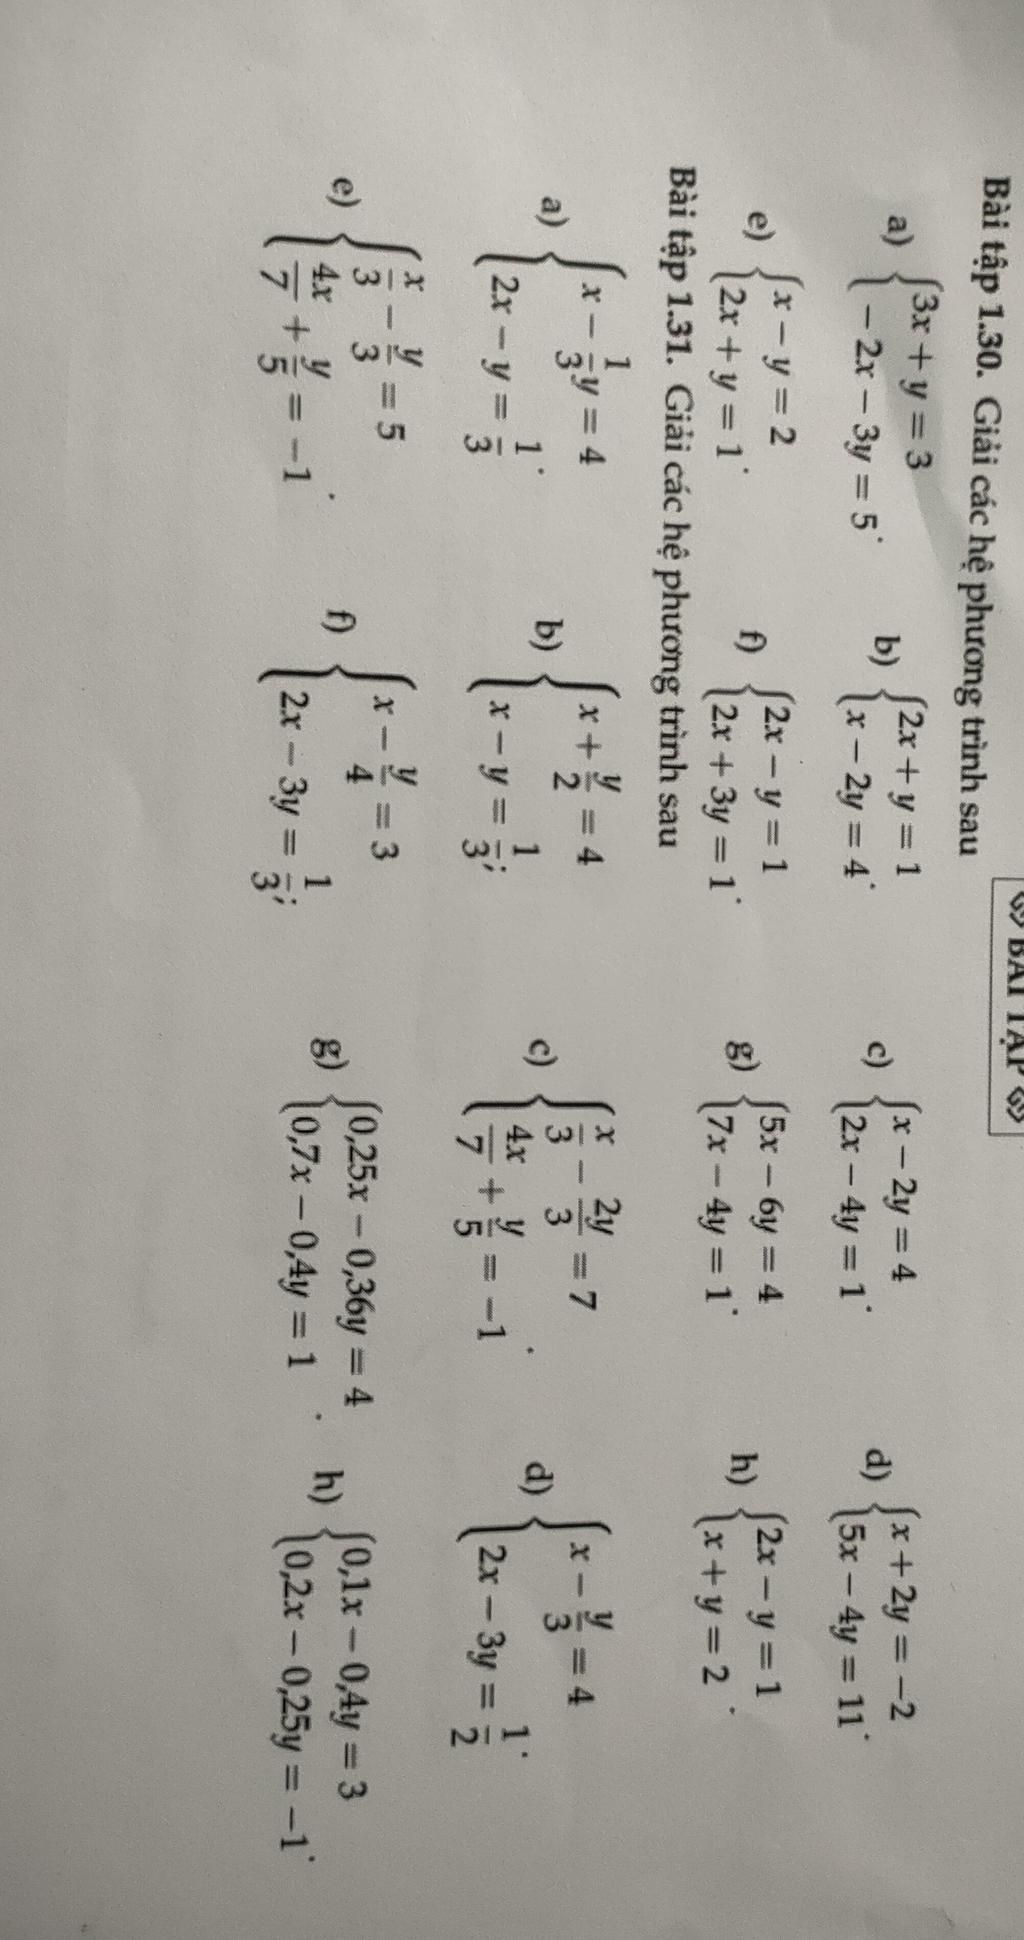 BÀI TẬP
Bài tập 1.30. Giải các hệ phương trình sau
a) {3x + y = 3
−2x − 3y = 5.
b) {2x + y = 1
x − 2y = 4.
c) {x − 2y = 4
2x − 4y = 1.
d) {x + 2y = −2
5x − 4y = 11.
e) {x − y = 2
2x + y = 1.
f) {2x − y = 1
2x + 3y = 1.
g) {5x − 6y = 4
7x − 4y = 1.
h) {2x − y = 1
x + y = 2.
Bài tập 1.31. Giải các hệ phương trình sau
a) {x − 1/3y = 4
2x − y = 1/3.
b) {x + y/2 = 4
x − y = 1/3;
c) {x/3 − 2y/3 = 7
4x/7 + y/5 = −1.
d) {x − y/3 = 4
2x − 3y = 1/2.
e) {x/3 − y/3 = 5
4x/7 + y/5 = −1.
f) {x − y/4 = 3
2x − 3y = 1/3;
g) {0,25x − 0,36y = 4
0,7x − 0,4y = 1.
h) {0,1x − 0,4y = 3
0,2x − 0,25y = −1.